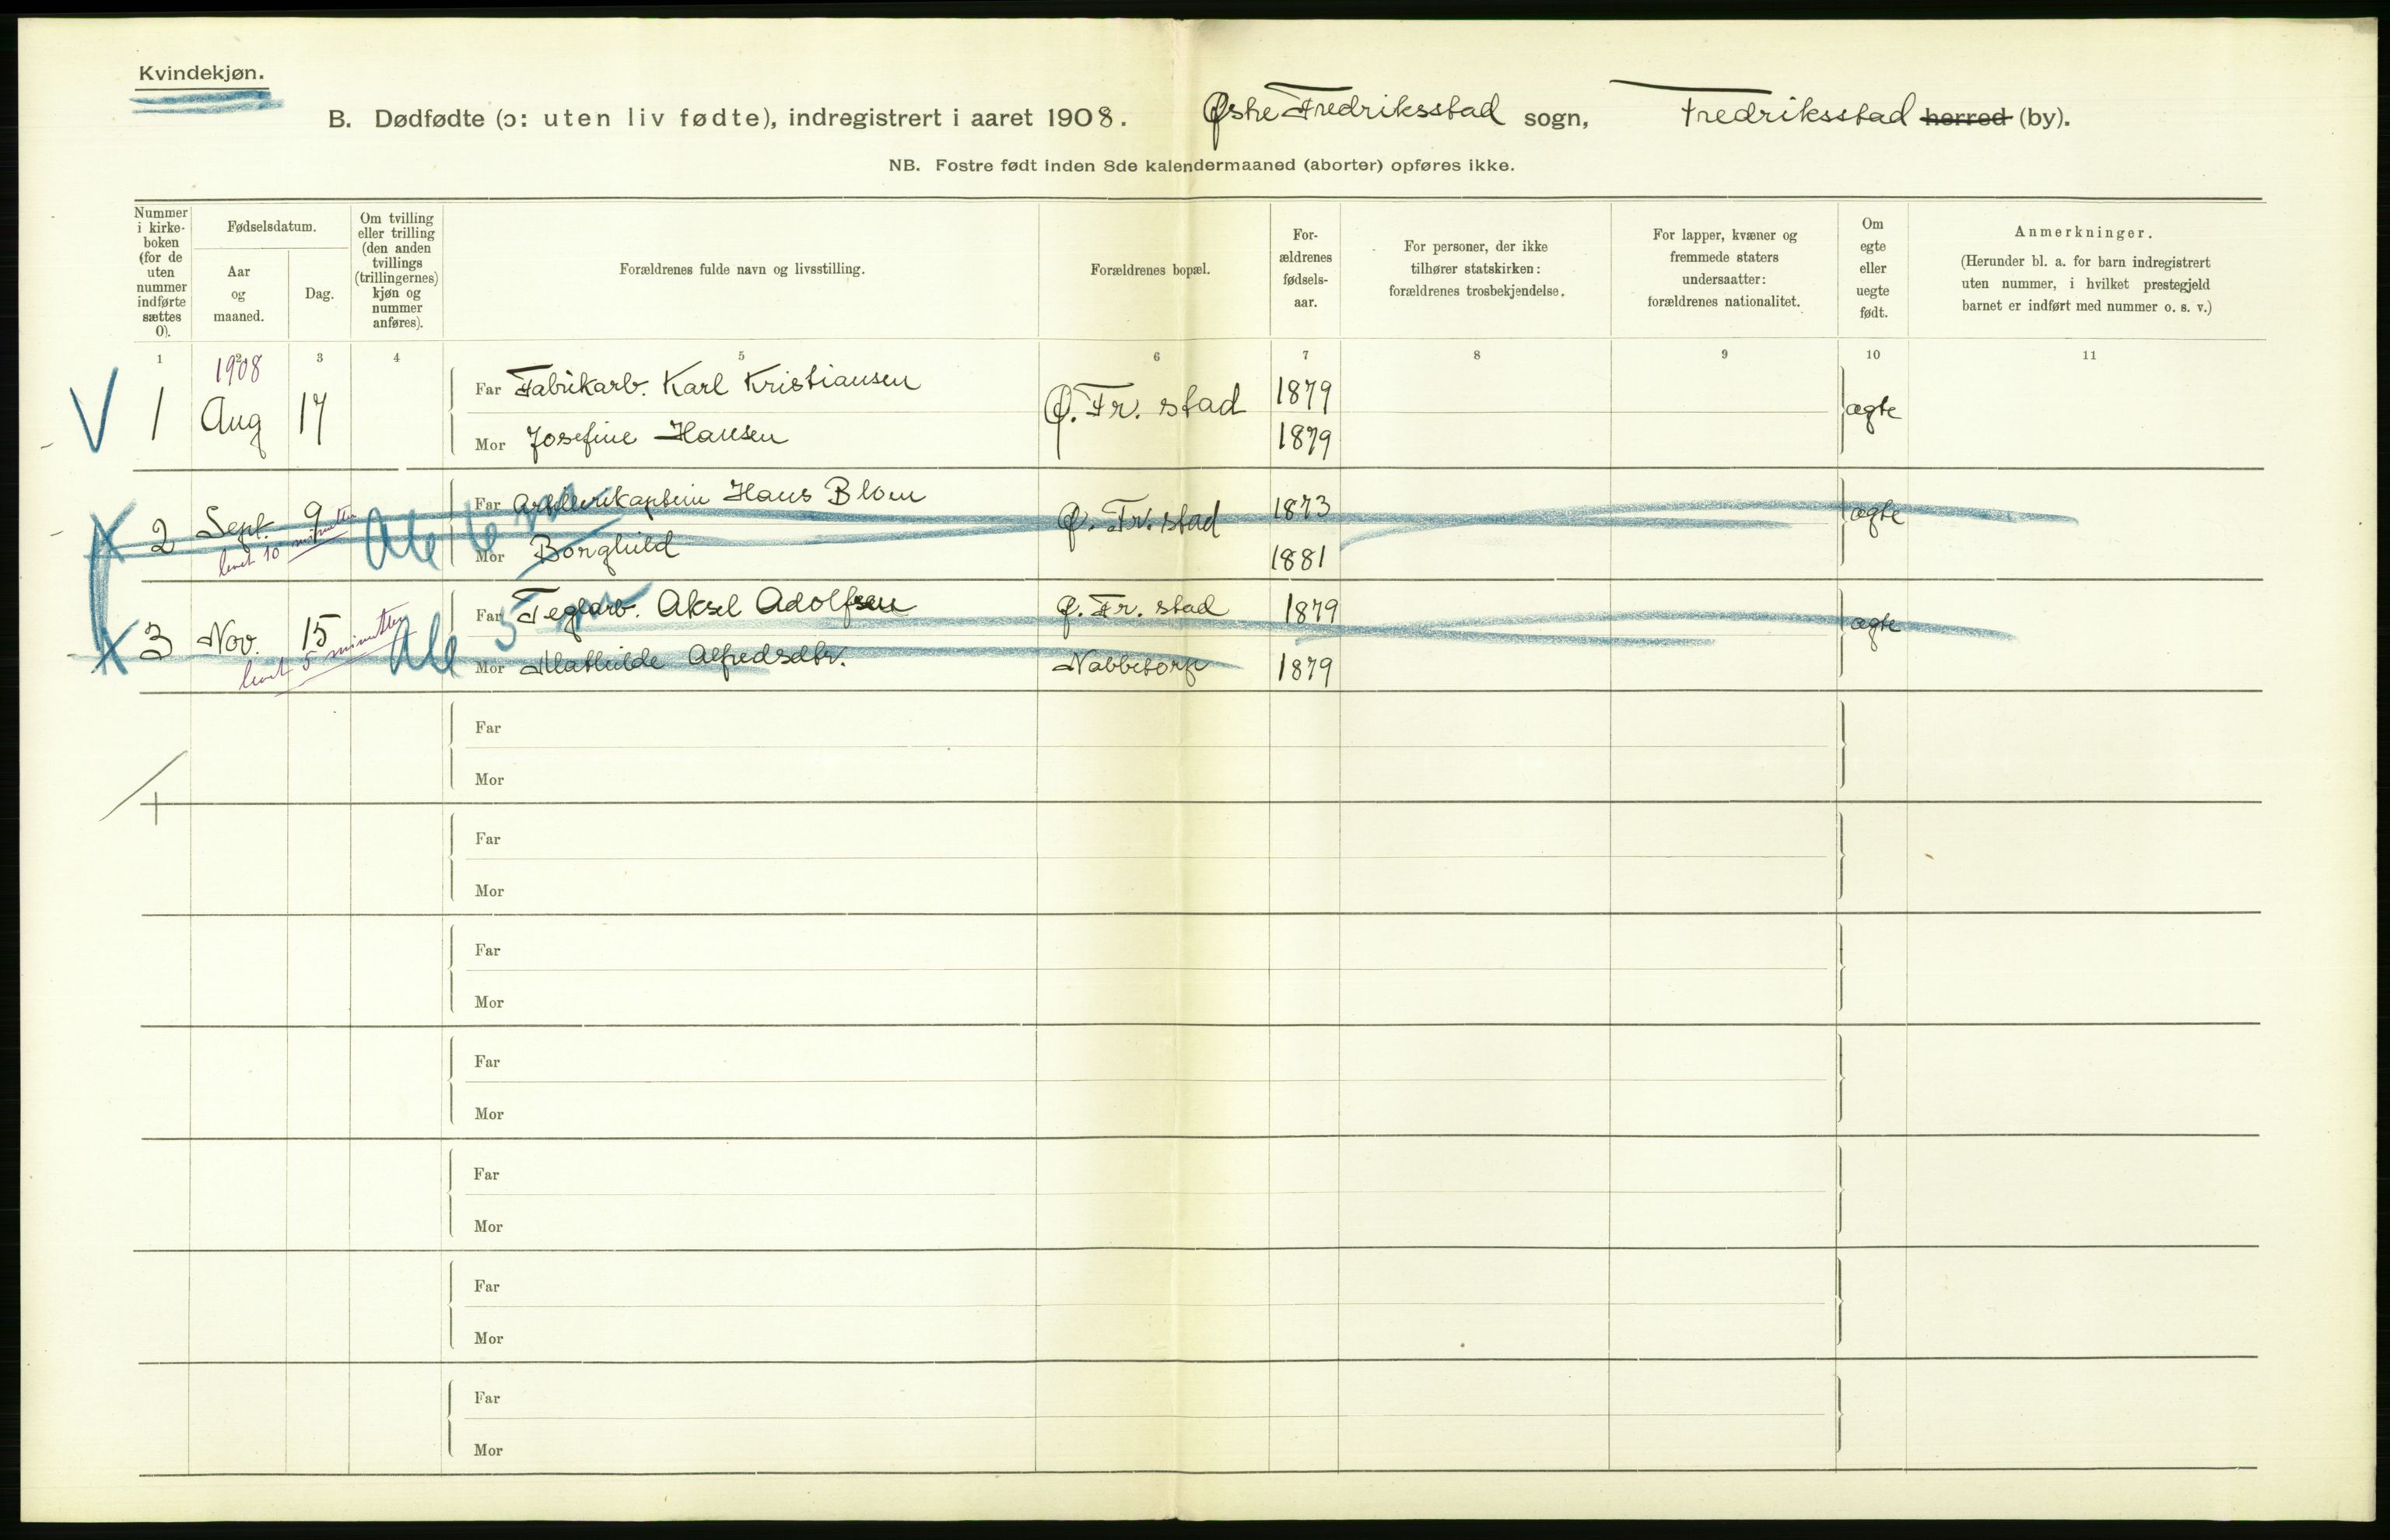 Kvindekjøn.
B. Dødfødte (ɔ: uten liv fødte), indregistrert i aaret 1908. Østre Fredriksstad sogn, Fredriksstad herred (by).
NB. Fostre født inden 8de kalendermaaned (aborter) opføres ikke.
Nummer i kirke-boken (for de uten nummer indførte sættes 0).
Fødselsdatum.
Aar og maaned.
Dag.
Om tvilling eller trilling (den anden tvillings (trillingernes) kjøn og nummer anføres).
Forældrenes fulde navn og livsstilling.
Forældrenes bopæl.
For-ældrenes fødsels-aar.
For personer, der ikke tilhører statskirken: forældrenes trosbekjendelse.
For lapper, kvæner og fremmede staters undersaatter: forældrenes nationalitet.
Om egte eller uegte født.
Anmerkninger.
(Herunder bl. a. for barn indregistrert uten nummer, i hvilket prestegjeld barnet er indført med nummer o. s. v.)
1 2 3 4 5 6 7 8 9 10 11
1908
V 1 Aug 17 Far Fabrikarb. Karl Kristiansen Ø. Fr. stad 1879 ægte
Mor Josefine Hansen 1879
2 Sept. 9 Far Artillerikaptein Hans Blom Ø. Fr. stad 1873 ægte
levet 10 minutter
Mor Borghild 1881
3 Nov. 15 Far Teglarb. Aksel Adolfsen Ø. Fr. stad 1879 ægte
levet 5 minutter
Mor Mathilde Alfredsdtr. Nabbetorp 1879
Far
Mor
Far
Mor
Far
Mor
Far
Mor
Far
Mor
Far
Mor
Far
Mor